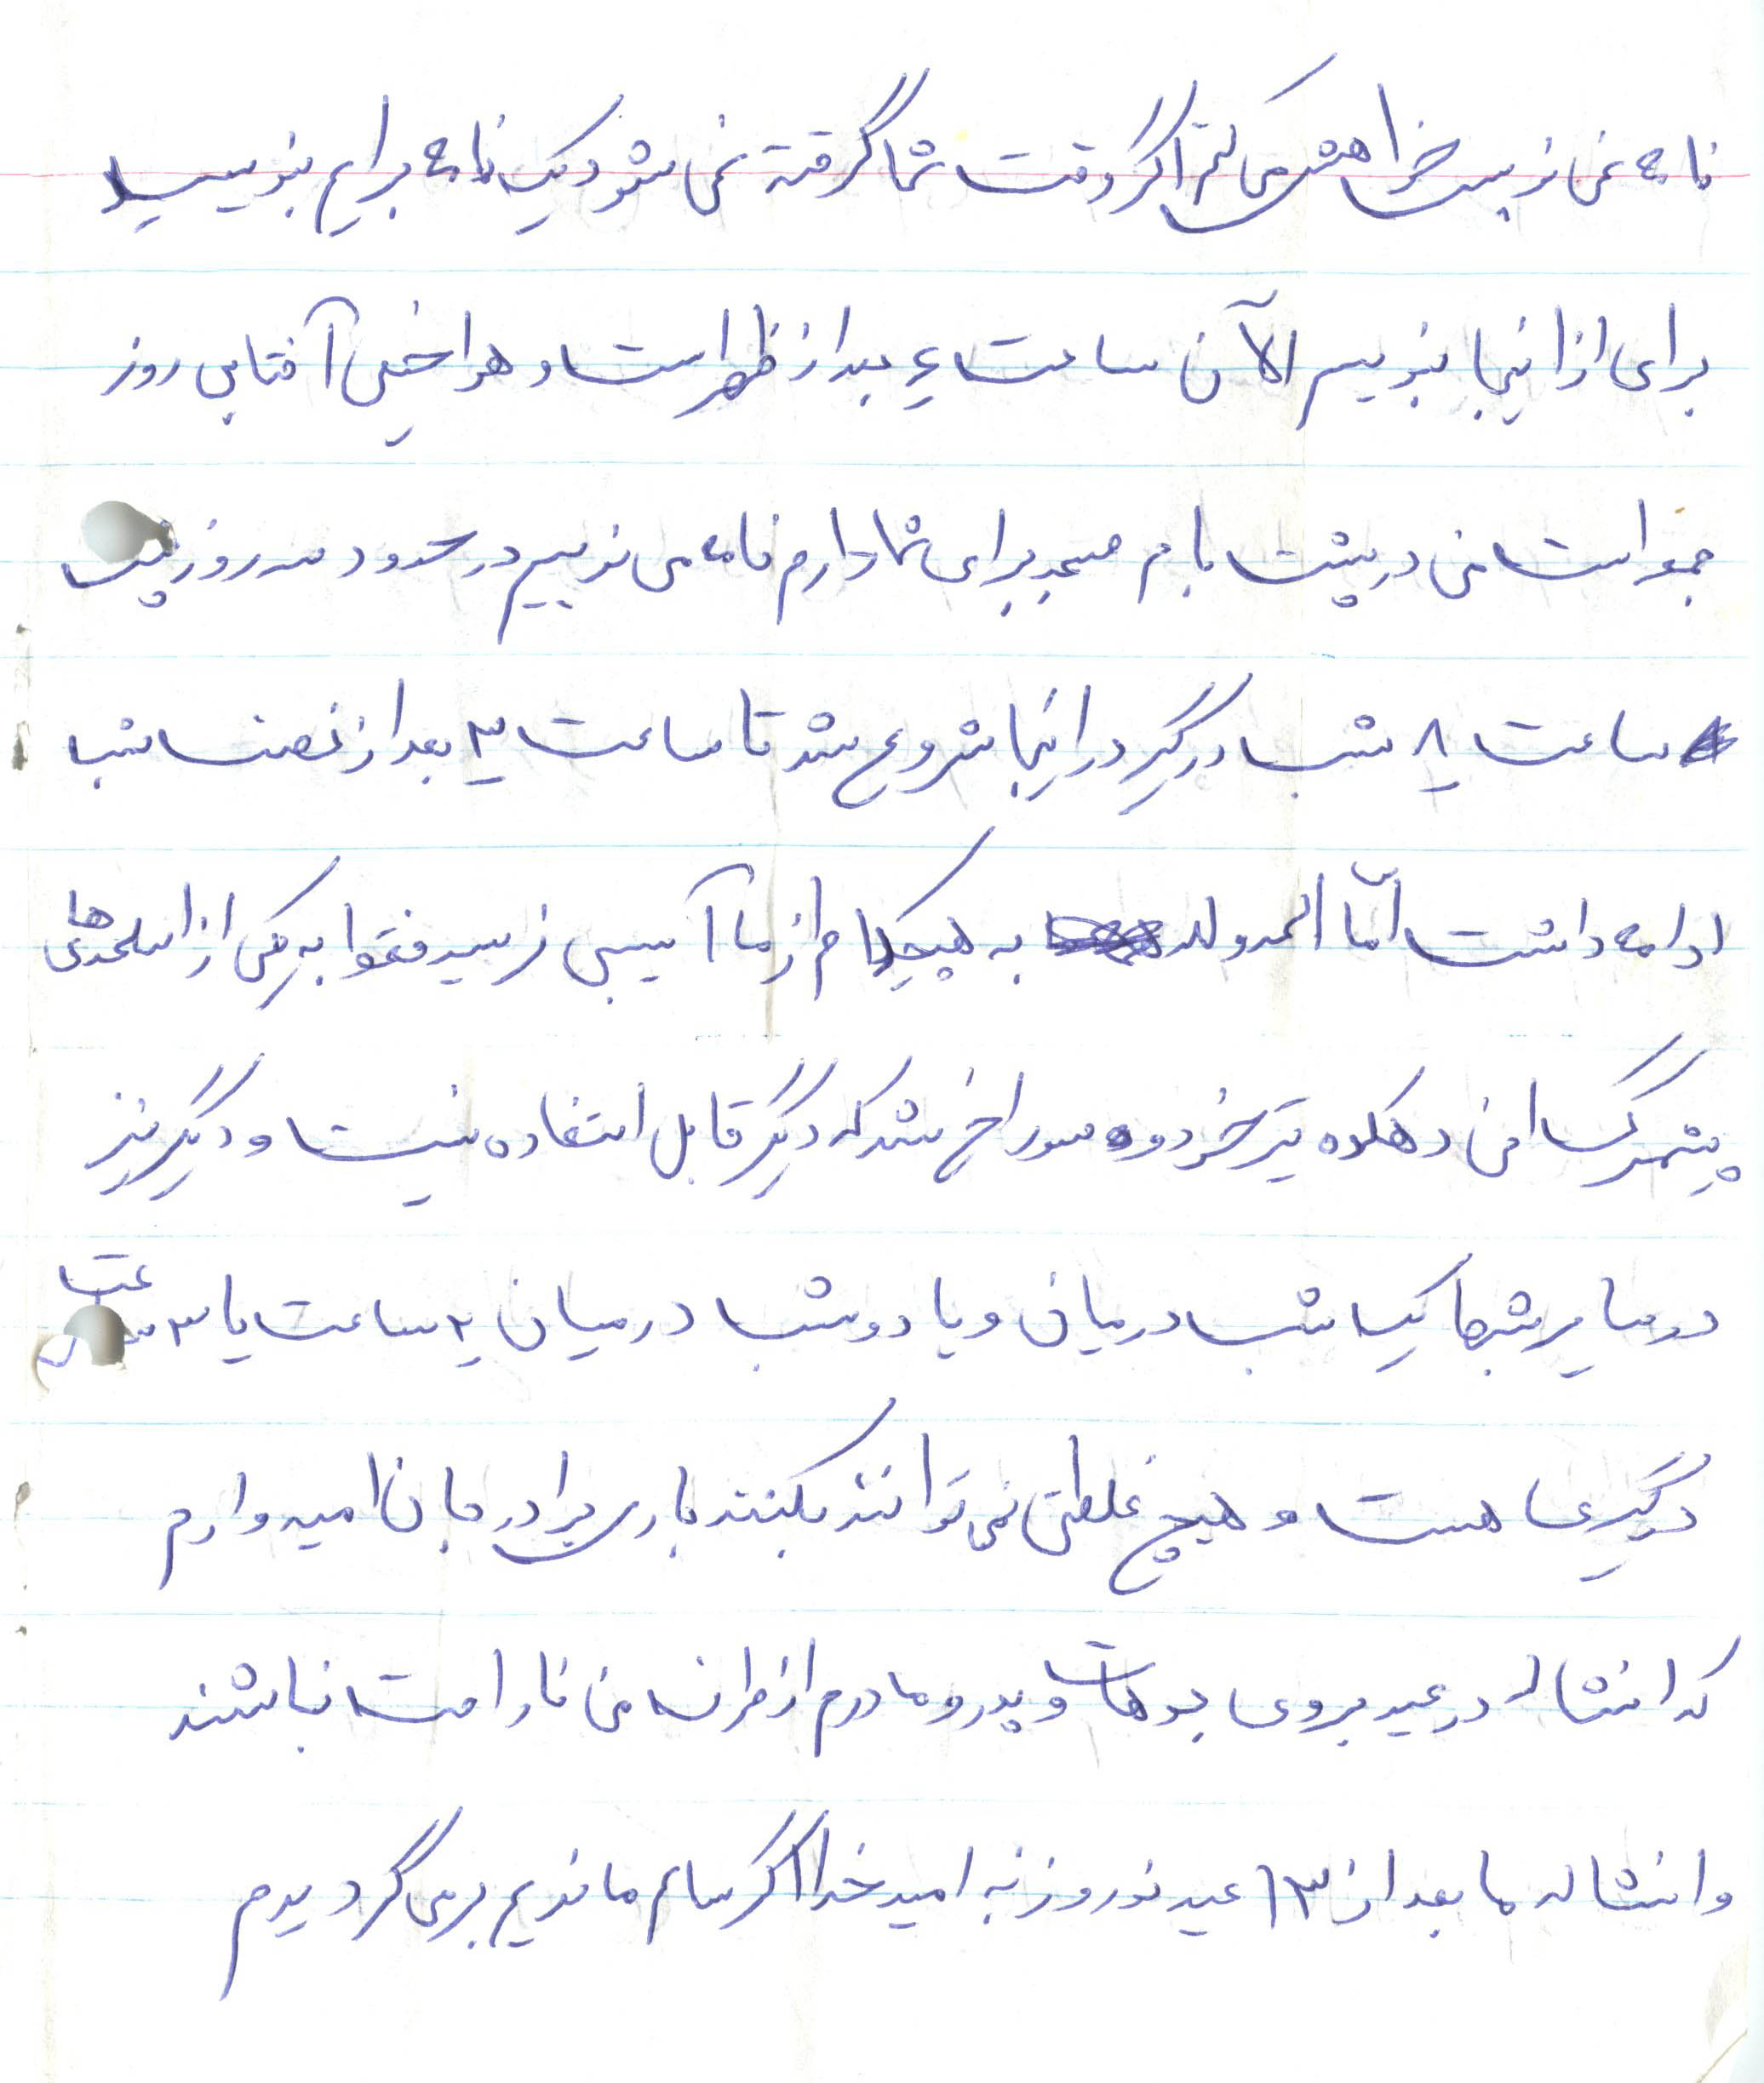 نامه نمی‌نویسی خواهش می‌کنم اگر وقت شما گرفته نمی‌شود یک نامه برایم بنویسید
برای از اینجا بنویسم الآن ساعت ۴ بعد از ظهر است و هوا خیلی آفتابی روز
جمعه است من در پشت بام مسجد برای شما دارم نامه می‌نویسم در حدود سه روز پیش
ساعت ۸ شب درگیر در اینجا شروع شد تا ساعت ۳ بعد از نصف شب
ادامه داشت امّا الحمدولله به هیچکدام از ما آسیبی نرسید فقط به یکی از اسلحه‌های
پیشمرگان دهکده تیر خورده سوراخ شد که دیگر قابل استفاده نیست و دیگر نیز
در سایر شبها یک شب در میان و یا دو شب در میان ۲ ساعت یا ۳ ساعت
درگیری هست و هیچ غلطی نمی‌توانند بکنند باری برادر جان امیدوارم
که انشاله در عید بروی دهات و پدر و مادرم از طرف من ناراحت نباشند
و انشاله ما بعد از ۱۳ عید نوروز به امید خدا اگر سالم ماندیم برمی‌گردیدم